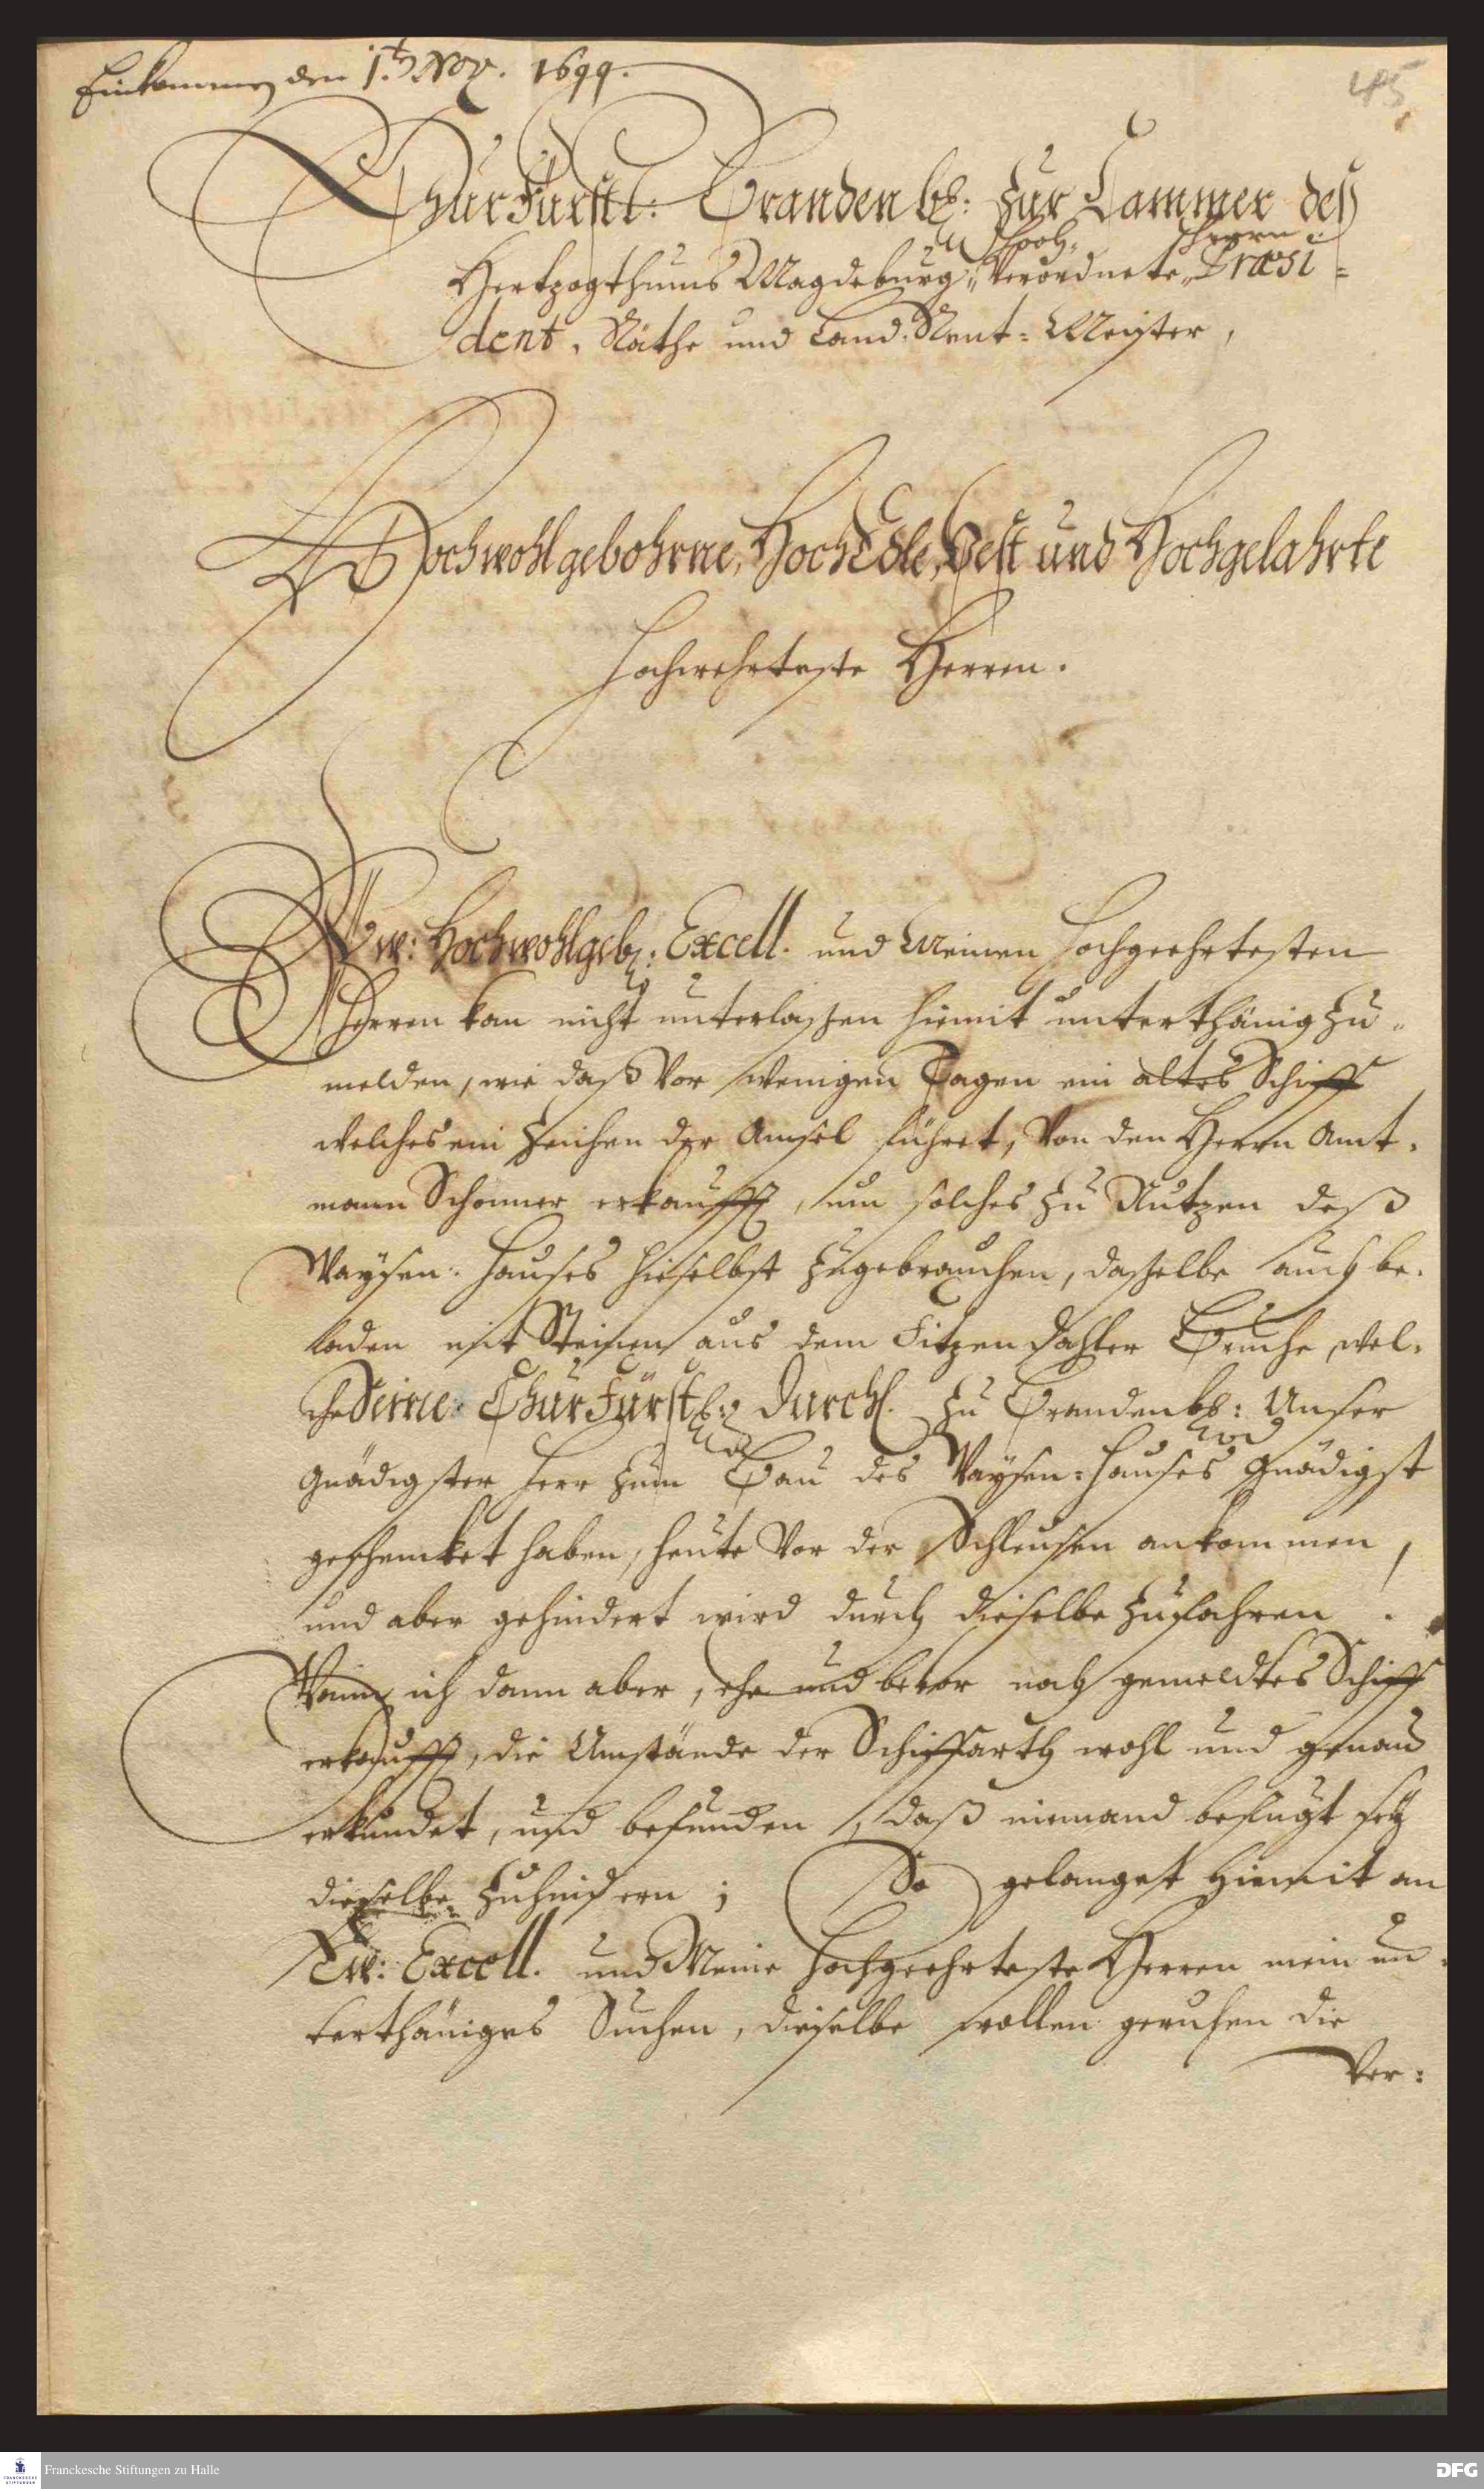 Einkommen den 1.t Nov. 1699.
45
ChurFürstl: Brandenb: Zur Cammer des
Hoch¬ Herrn
Hertzogthums Magdeburg, Verordnete Præsi=
dent, Räthe und Land-Rent-Meister,
Hochwohlgebohrne, HochEdle, Vest und Hochgelahrte
Hochwehrteste Herren.
Ew: Hochwohlgeb: Excell. und Meinen Hochgeehrtesten
Herren kan nicht unterlaßen hiemit unterthänig zu
melden, wie daß vor wenigen Tagen ein altes Schiff
welches ein Zeichen der Amsel führet, von den Herrn Amt-
mann Schonner erkaufft, um solches zu Nutzen deß
Waysen-Hauses hieselbst zugebrauchen, daßelbe auch be-
laden mit Steinen aus dem Sitzendahler Bruche wel-
che Seine ChurFürstl: Durchl. zu Brandenb: Unser
Gnädigster Herr zum Bau des Waysen-Hauses Gnädigst
geschencket haben, heute vor der Schleusen ankommen,
und aber gehindert wird durch dieselbe zufahren.
Wann ich dann aber, ehe und bevor noch gemeldtes Schiff
erkaufft, die Umstände der Schiffarth wohl und genau
erkundet, und befunden, daß niemand befugt sey
dieselbe zuhindern; So gelanget hiemit an
Ew: Excell. und Meine Hochgeehrteste Herren mein un-
terthäniges Suchen, dieselbe wollen geruhen die
Ver:
Franckesche Stiftungen zu Halle
FRANCKESCHE STIFTUNGEN
DFG